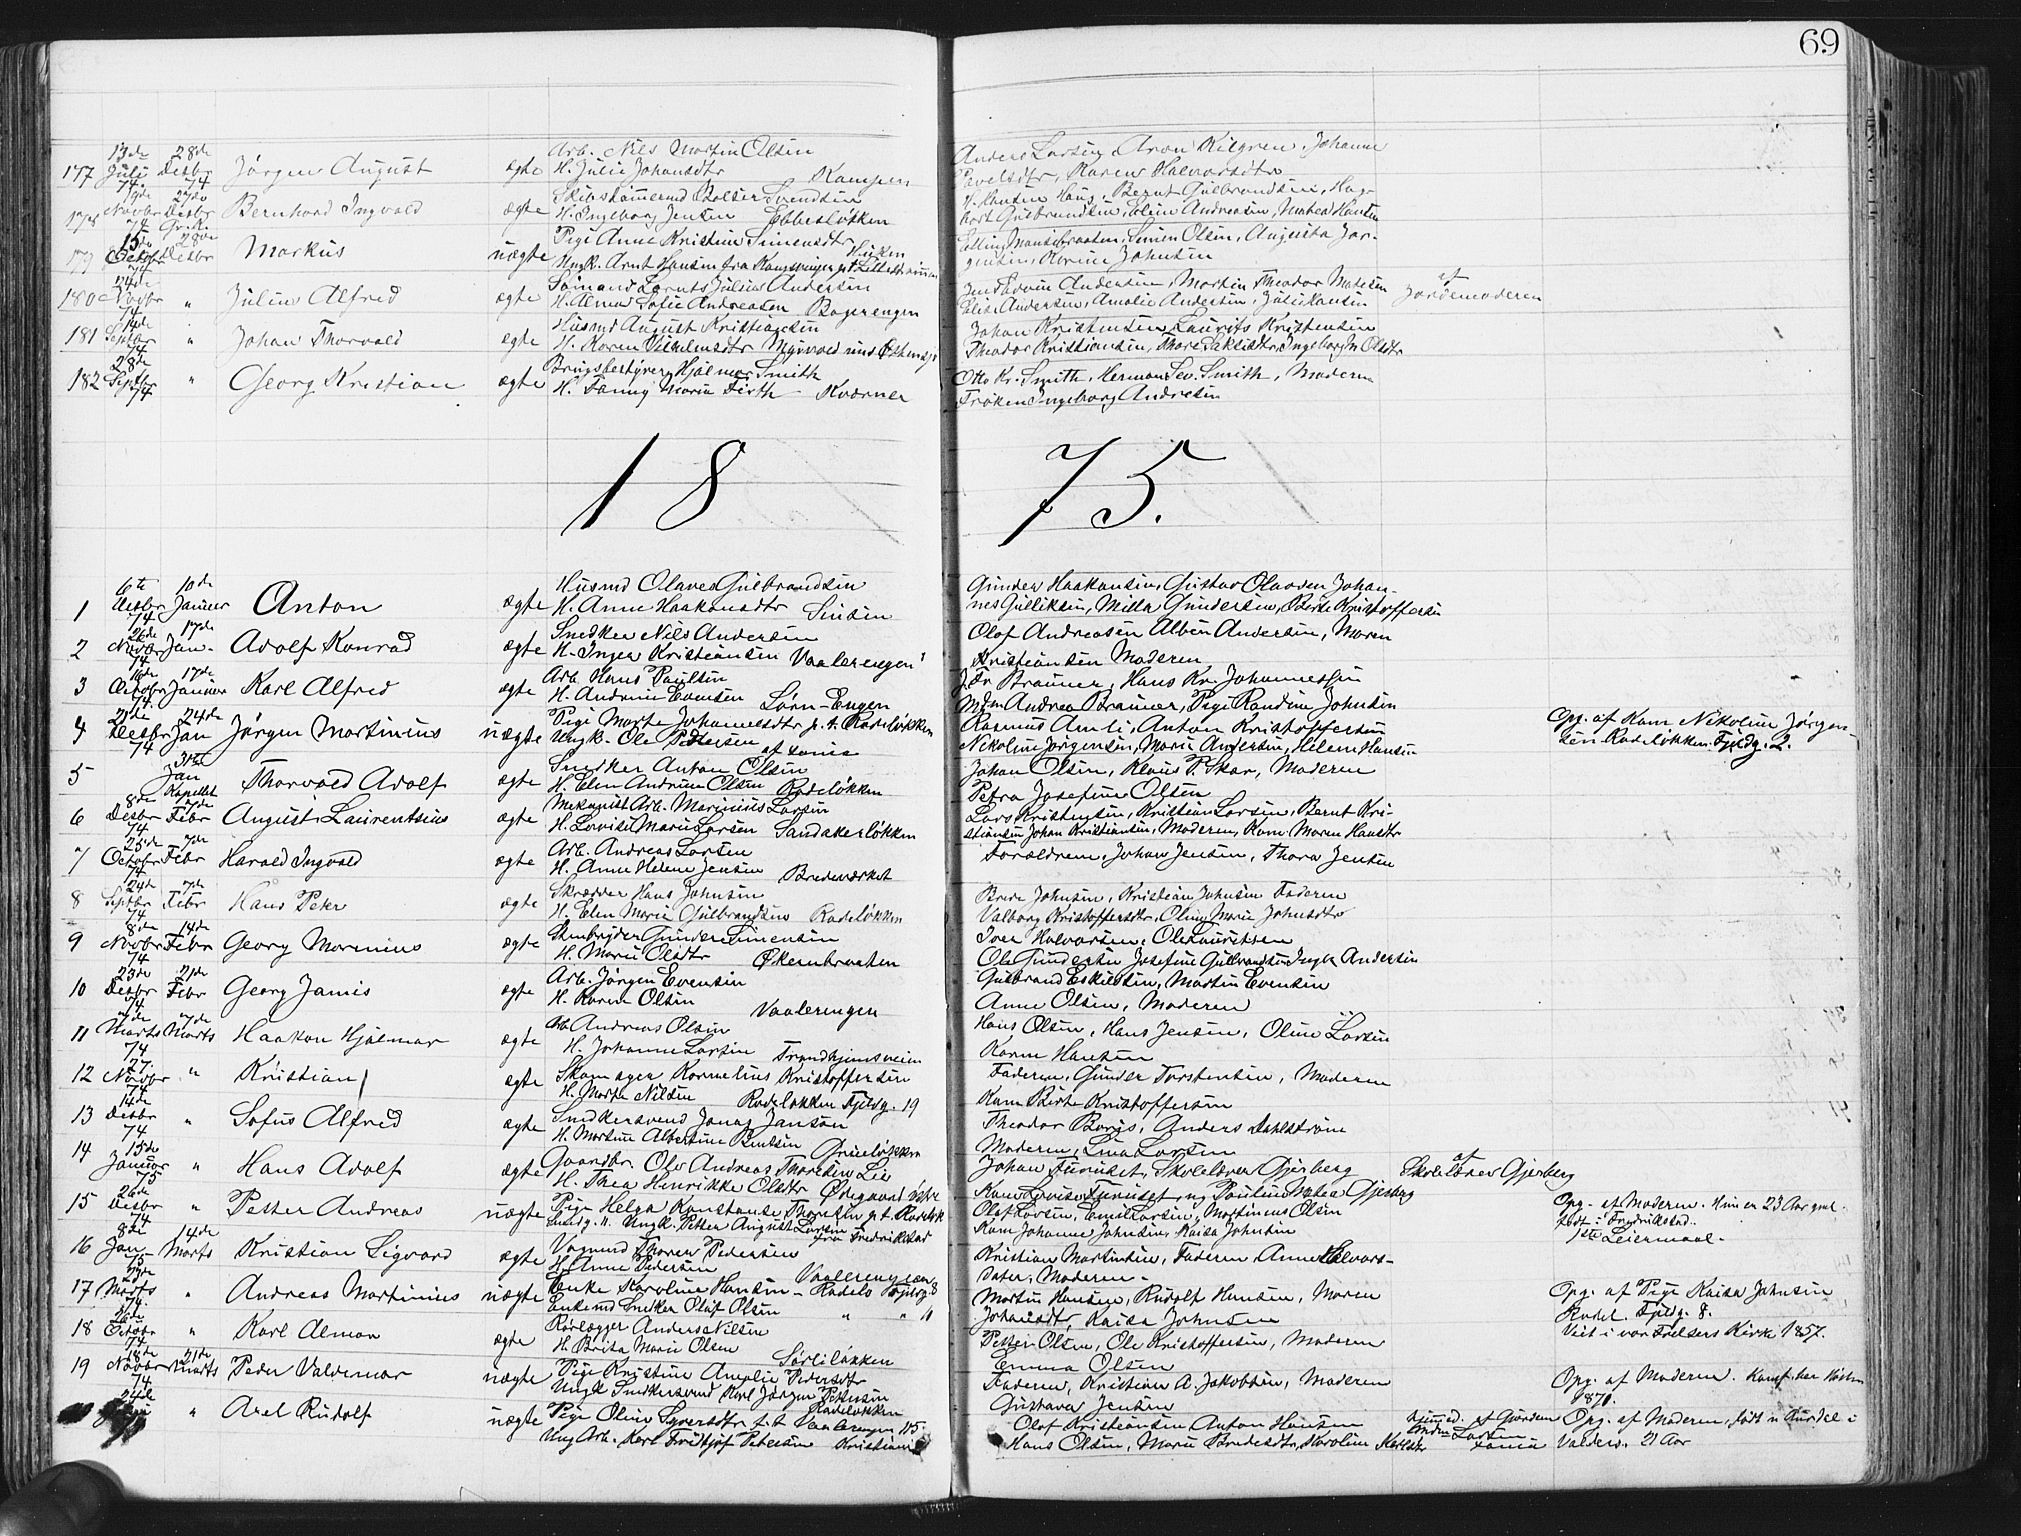 69
177 13de Juli 74. 28de Desbr 74 Jørgen August ægte Arb. Nils Martin Olsen
H. Julie Johansdtr Kampen
Anders Larsen, Aron Kilgren, Johanne
Pavelsdtr, Karen Halvorsdtr
178 Novbr 74 27de Desbr Bernhard Ingvald ægte Svendsen
H. Ingeborg Jensen Ebbesløkken
H. Hansen Haug, Bernt Gulbrandsen, Hag-
bart Gulbrandsen, Eline Andreasen, Mathea Hansen
179 15de Octobr 74 28de Desbr Markus uægte Pige Anne Kristine Simensdtr
Ungk. Arnt Hansen fra Kongsvinger
Simen Olsen, Augusta Jør-
gensen, Karine Johnsen
180 24de Novbr 74 " Julius Alfred ægte Sømand Laruts Julius Andersen
H. Anna Sofie Andreasen Bagerengen
Jens Edvin Andersen, Martin Theodor Madsen
Elise Andersen, Amalie Andersen, Julie Hansen
af Jordemoderen
181 14de Septbr 74 " Johan Thorvald ægte Husmd August Kristiansen
H. Karen Vilhelmsdtr Myrvold
Johan Kristensen, Laurits Kristensen
Theodor Kristiansen, Ingeborg M. Olsdtr
182 28de Septbr 74 " Georg Kristian ægte Brugsbestyrer Hjalmar Smith
H. Fanny Marie Firth Kværner
Otto Kr. Smith, Herman Sev. Smith, Moderen
Frøken Ingeborg Andresen
1875.
1 6te Desbr 74 10de Januar Anton ægte Husmd Olaves Gulbrandsen
H. Anne Haakensdtr Sinsen
Gunder Haakensen, Gustav Olavesen, Johan-
nes Gulliksen, Milla Gundersen, Berte Kristoffersen
2 26de Novbr 74 17de Jan. Adolf Konrad ægte Snedker Nils Andersen
H. Inger Kristiansen Vaalerengen
Olof Andreasen Albin Andersen, Maren
Kristiansen Moderen
3 16de Octobr 74 17de Januar Karl Alfred ægte Arb. Hans Paulsen
H. Andrine Evensen Lørn-Engen
J. Fr. Brauner, Hans Kr. Johannessen
Mdm Andrea Brauner, Pige Randine Johnsen
4 21de Desbr 74 24de Jan Jørgen Martinius uægte Pige Marte Johannesdtr p.t. Rodeløkken
Ungk. Ole Pettersen
Rasmus Amli, Anton Kristoffersen
Nikoline Jørgensen, Marie Andersen, Helene Hansen
Opg. af Kone Nikoline Jørgen-
sen Rodeløkken. Fjeldg. 2.
5 31te Jan Kapellet Thorvald Adolf ægte Snedker Anton Olsen
H. Elen Andrine Olsen Rodeløkken
Johan Olsen, Klaus P. Skar, Moderen
Petra Josefine Olsen
6 8de Desbr 74 7de Febr August Laurentsius ægte Mekanist Arb. Marinius Larsen
H. Lovise Marie Larsen Sandakerløkken
Lars Kristensen, Kristian Larsen, Bernt Kri-
stiansen Johan Kristiansen, Moderen, Kone Maren Hansdtr
7 25de Octobr 74 7de Febr Harald Ingvald ægte Arb. Andreas Larsen
H. Anne Helene Jensen Bredeværket
Forældrene, Johan Jensen, Thora Jensen
8 24de Septbr 74 7de Febr Hans Peter ægte Skrædder Hans Johnsen
H. Elen Marie Gulbrandsen Rodeløkken
Brede Johnsen, Kristian Johnsen Faderen
Valborg Kristoffersdtr, Oline Marie Johnsdtr
9 8de Novbr 74 14de Febr Georg Morenius ægte Stenbryder Gunder Simensen
H. Marie Olsdtr Økernbraaten
Iver Halvorsen, Ole Lauritsen
Ole Gundersen Josefine Gulbrandsen Inger Andersen
10 23de Desbr 74 21de Febr Georg Jamis ægte Arb. Jørgen Evensen
H. Karen Olsen Vaalerengen
Gulbrand Eskildsen, Martin Evensen
Anne Olsen, Moderen
11 7de Marts 74 7de Marts Haakon Hjalmar ægte Arb. Andreas Olsen
H. Johanne Larsen Trondhjemsveien
Hans Olsen, Hans Jensen, Oline Larsen
Karen Hansen
12 27. Novbr 74 " Kristian ægte Skomager Kornelius Kristoffersen
H. Marte Nilsen Rodeløkken Fjeldg. 19
Faderen, Gunder Torstensen, Moderen
Kone Berte Kristoffersen
13 14de Desbr 74 " Sofus Alfred ægte Snedkersvend Jonas Janson
H. Martine Albertine Bentsen Grüneløkken
Theodor Borgs, Anders Dahlstrøm
Moderen, Lina Larsen
14 15de Januar 75 " Hans Adolf ægte Gaardbr. Ole Andreas Thoresen Lie
H. Thea Henrikke Olsdtr Østre
Johan Furuset, Skolelærer Gjerberg
Kone Lovise Furuset og Pauline Mathea Gjerberg
af Skolelærer Gjerberg
15 26de Desbr 74 " Petter Andreas uægte Pige Helga Konstanse Thoresen p.t. Rodeløk
Lundg. 11. Ungk. Petter August Larsen fra Fredrikstad
Olaf Larsen, Emil Larsen, Martinius Olsen
Kone Johanne Johnsen, Kaisa Johnsen
Opg. af Moderen. Hun er 23 Aar gml.
født i Fredrikstad.
1ste Leiermaal.
16 8de Jan 75 14de Marts Kristian Sigvard ægte Vognmd Thorer Pedersen
H. Anne Pedersen Vaalerengen
Kristian Martinsen, Faderen Anne Halvors-
dater, Moderen.
17 Marts 74. " Andreas Martinius uægte Enke Karoline Hansen - Rodeløk Fjeldg. 8
Enkemd Snedker Olaf Olsen " " "
Martin Hansen, Rudolf Hansen, Maren
Johansdtr, Kaisa Johnsen
Opg. af Pige Kaisa Johnsen
Rodel. Fjeldg. 8.
Viet i vor Frelsers Kirke 1857.
18 26de Octobr 74 " Karl Alman ægte Rørlægger Anders Nilsen
H. Brita Marie Olsen Sørliløkken
Petter Olsen, Ole Kristoffersen, Moderen
Emma Olsen
19 18de Novbr 74 21de Marts Peder Valdemar uægte Pige Kristine Amalie Pedersdtr
Ungk Snedkersvend Karl Jørgen Pettersen Rodeløkken
Faderen, Kristian A. Jakobsen, Moderen
Gustava Jensen
Opg. af Moderen. Konf. her Høsten
1870.
24de " Axel Rudolf uægte Pige Oline Syversdtr p.t. Vaalerengen 115.
Ung Arb. Karl Fridtjof Petersen Kristiania
Olof Kristiansen Anton Hansen
Hans Olsen, Marie Bredesdtr, Karoline Karlsdtr
Opg. af Moderen, født i Aurdal i
Valders. 21 Aar